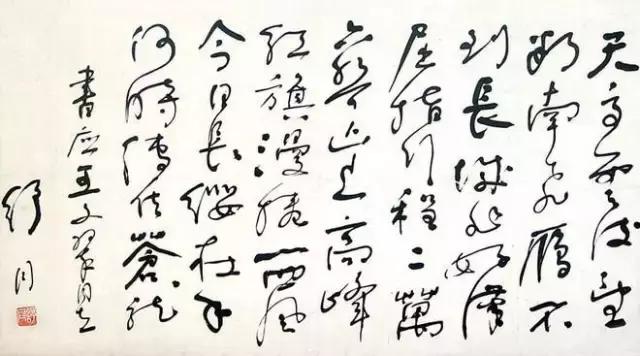 天高雲淡望
斷南飛雁不
到長城非好漢
屈指行程二萬
六盤山上高峰
紅旗漫捲西風
今日長纓在手
何時縛住蒼龍
書應王文同志
舒同